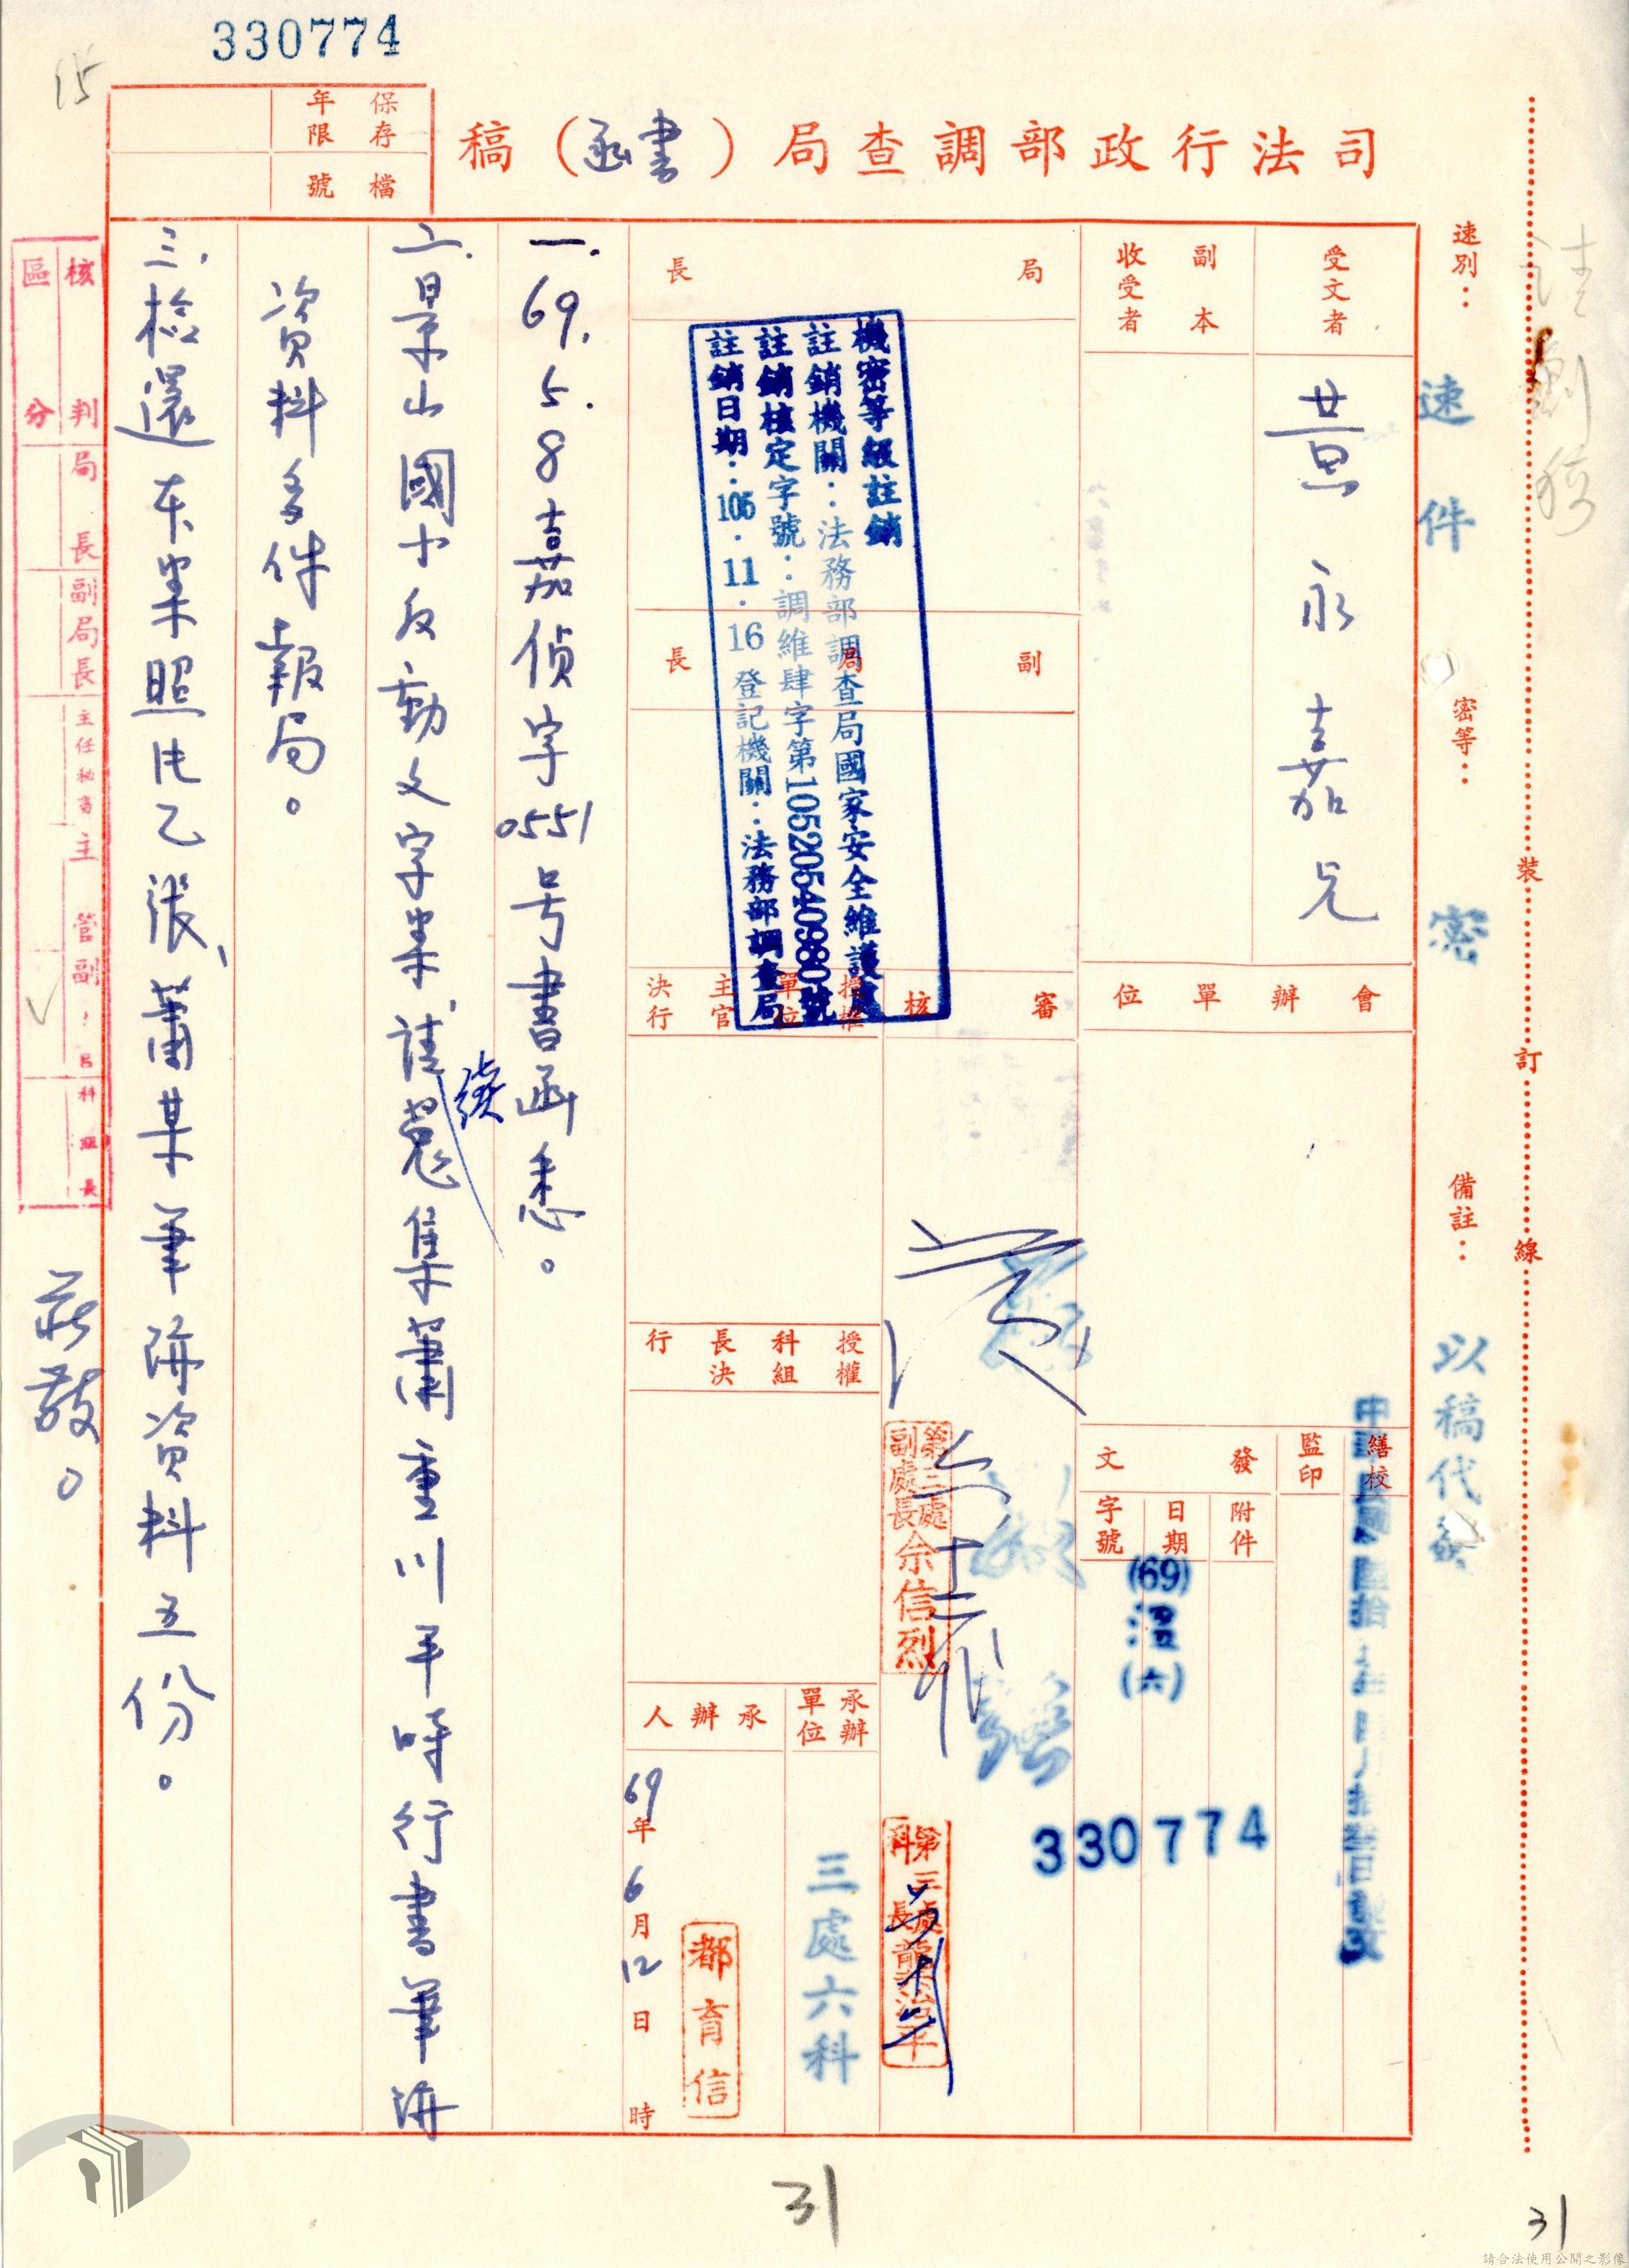 330774
15
司法行政部調查局（書函）稿
保存年限
檔號
速別：
速件
密等：
密
備註：
以稿代發
裝
訂
線
受文者
黃永嘉兄
副本收受者
會辦單位
繕校
監印
發文
附件
日期
字號
(69)
(六)
330774
局長
副局長
審核
授權單位主官決行
授權科組長決行
承辦單位
三處六科
承辦人
都育信
69年6月12日 時
第三處副處長余信烈
機密等級註銷
註銷機關：法務部調查局國家安全維護處
註銷核定字號：調維肆字第10520540980號
註銷日期：105.11.16登記機關：法務部調查局
一.69.5.8嘉偵字0551号書函悉。
二.景山國小反動文字案，請續蒐集蕭重川平時行書筆跡
資料多件報局。
三.檢還本案照片乙張、蕭某筆跡資料五份。
莊敬。
核判區分
局長
副局長
主任秘書
主管
科組長
31
31
請合法使用公開之影像